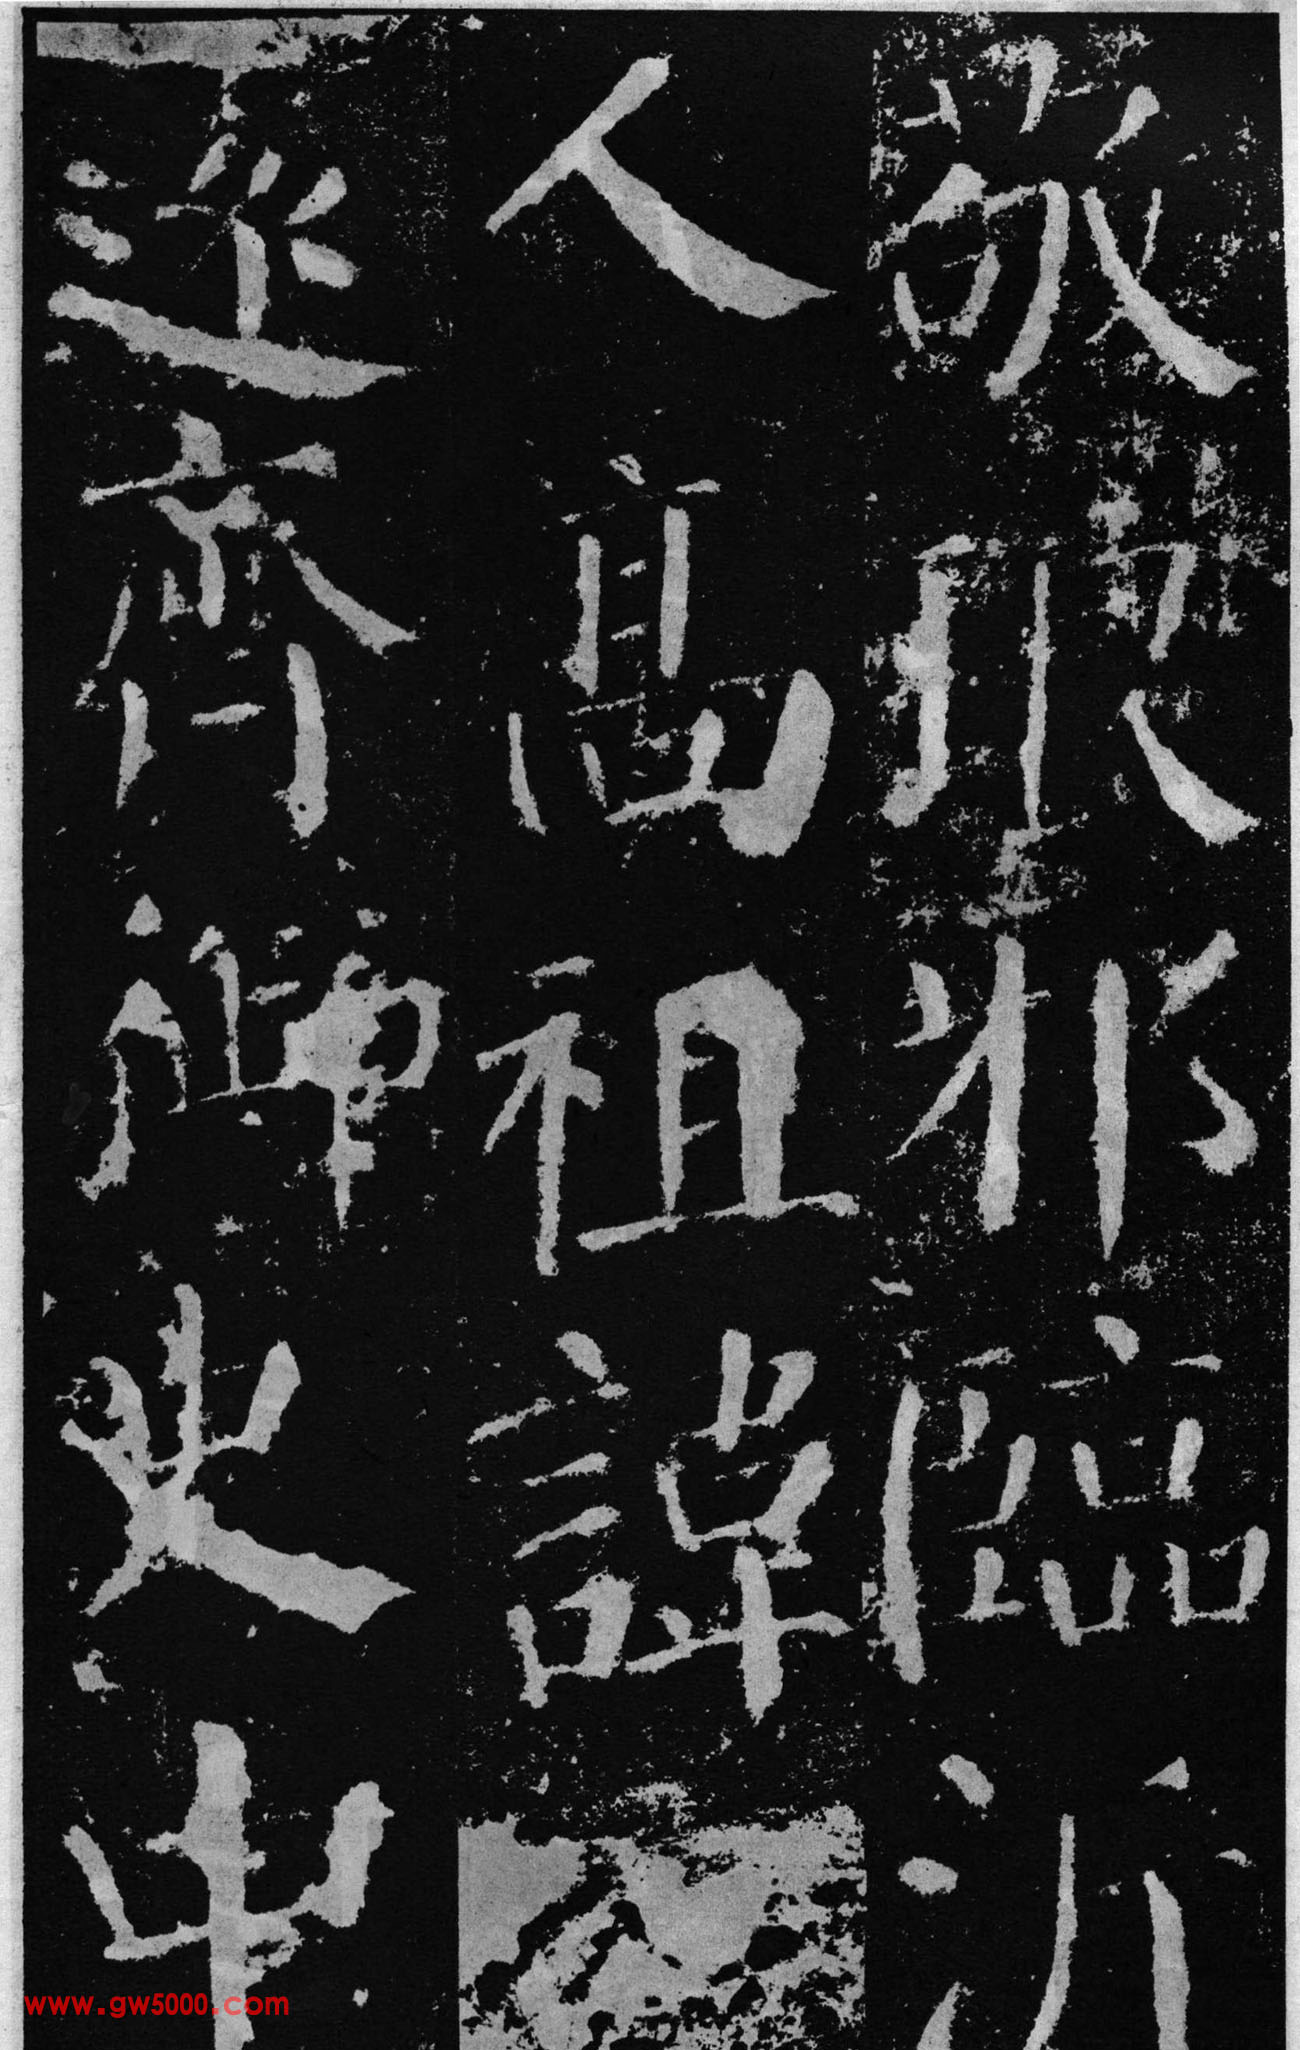 敬琅邪臨沂
人高祖諱
遠齊御史中
www.gw5000.com